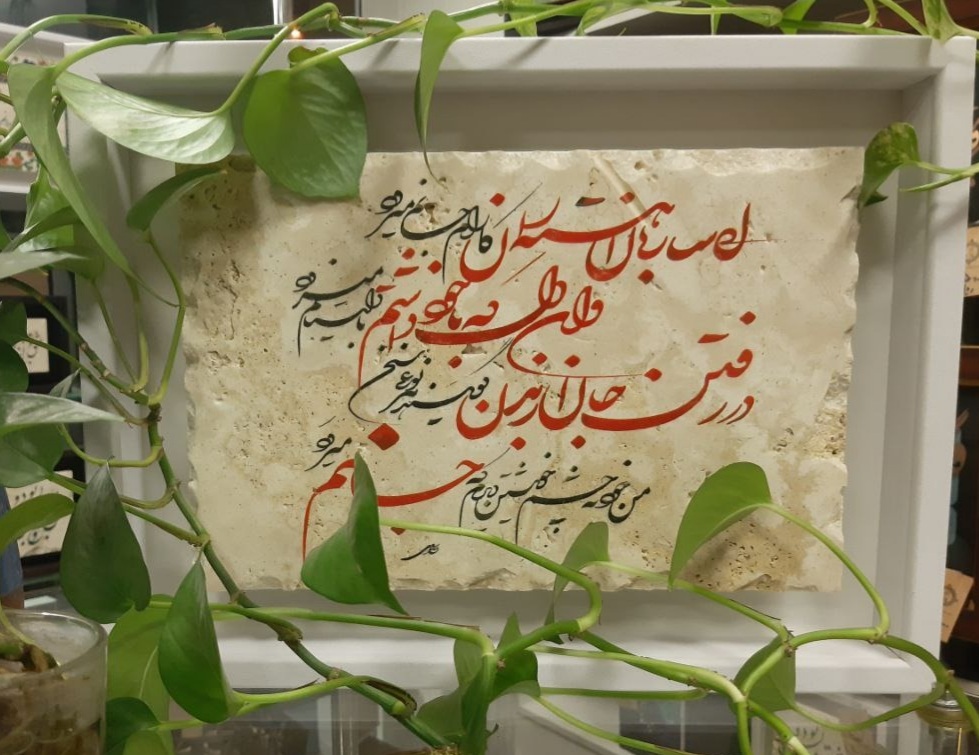 ای ساربان آهسته ران کارام جانم میرود
وان دل که با خود داشتم با دلستانم میرود
در رفتن جان از بدن گویند هر نوعی سخن
من خود به چشم خویشتن دیدم که جانم میرود